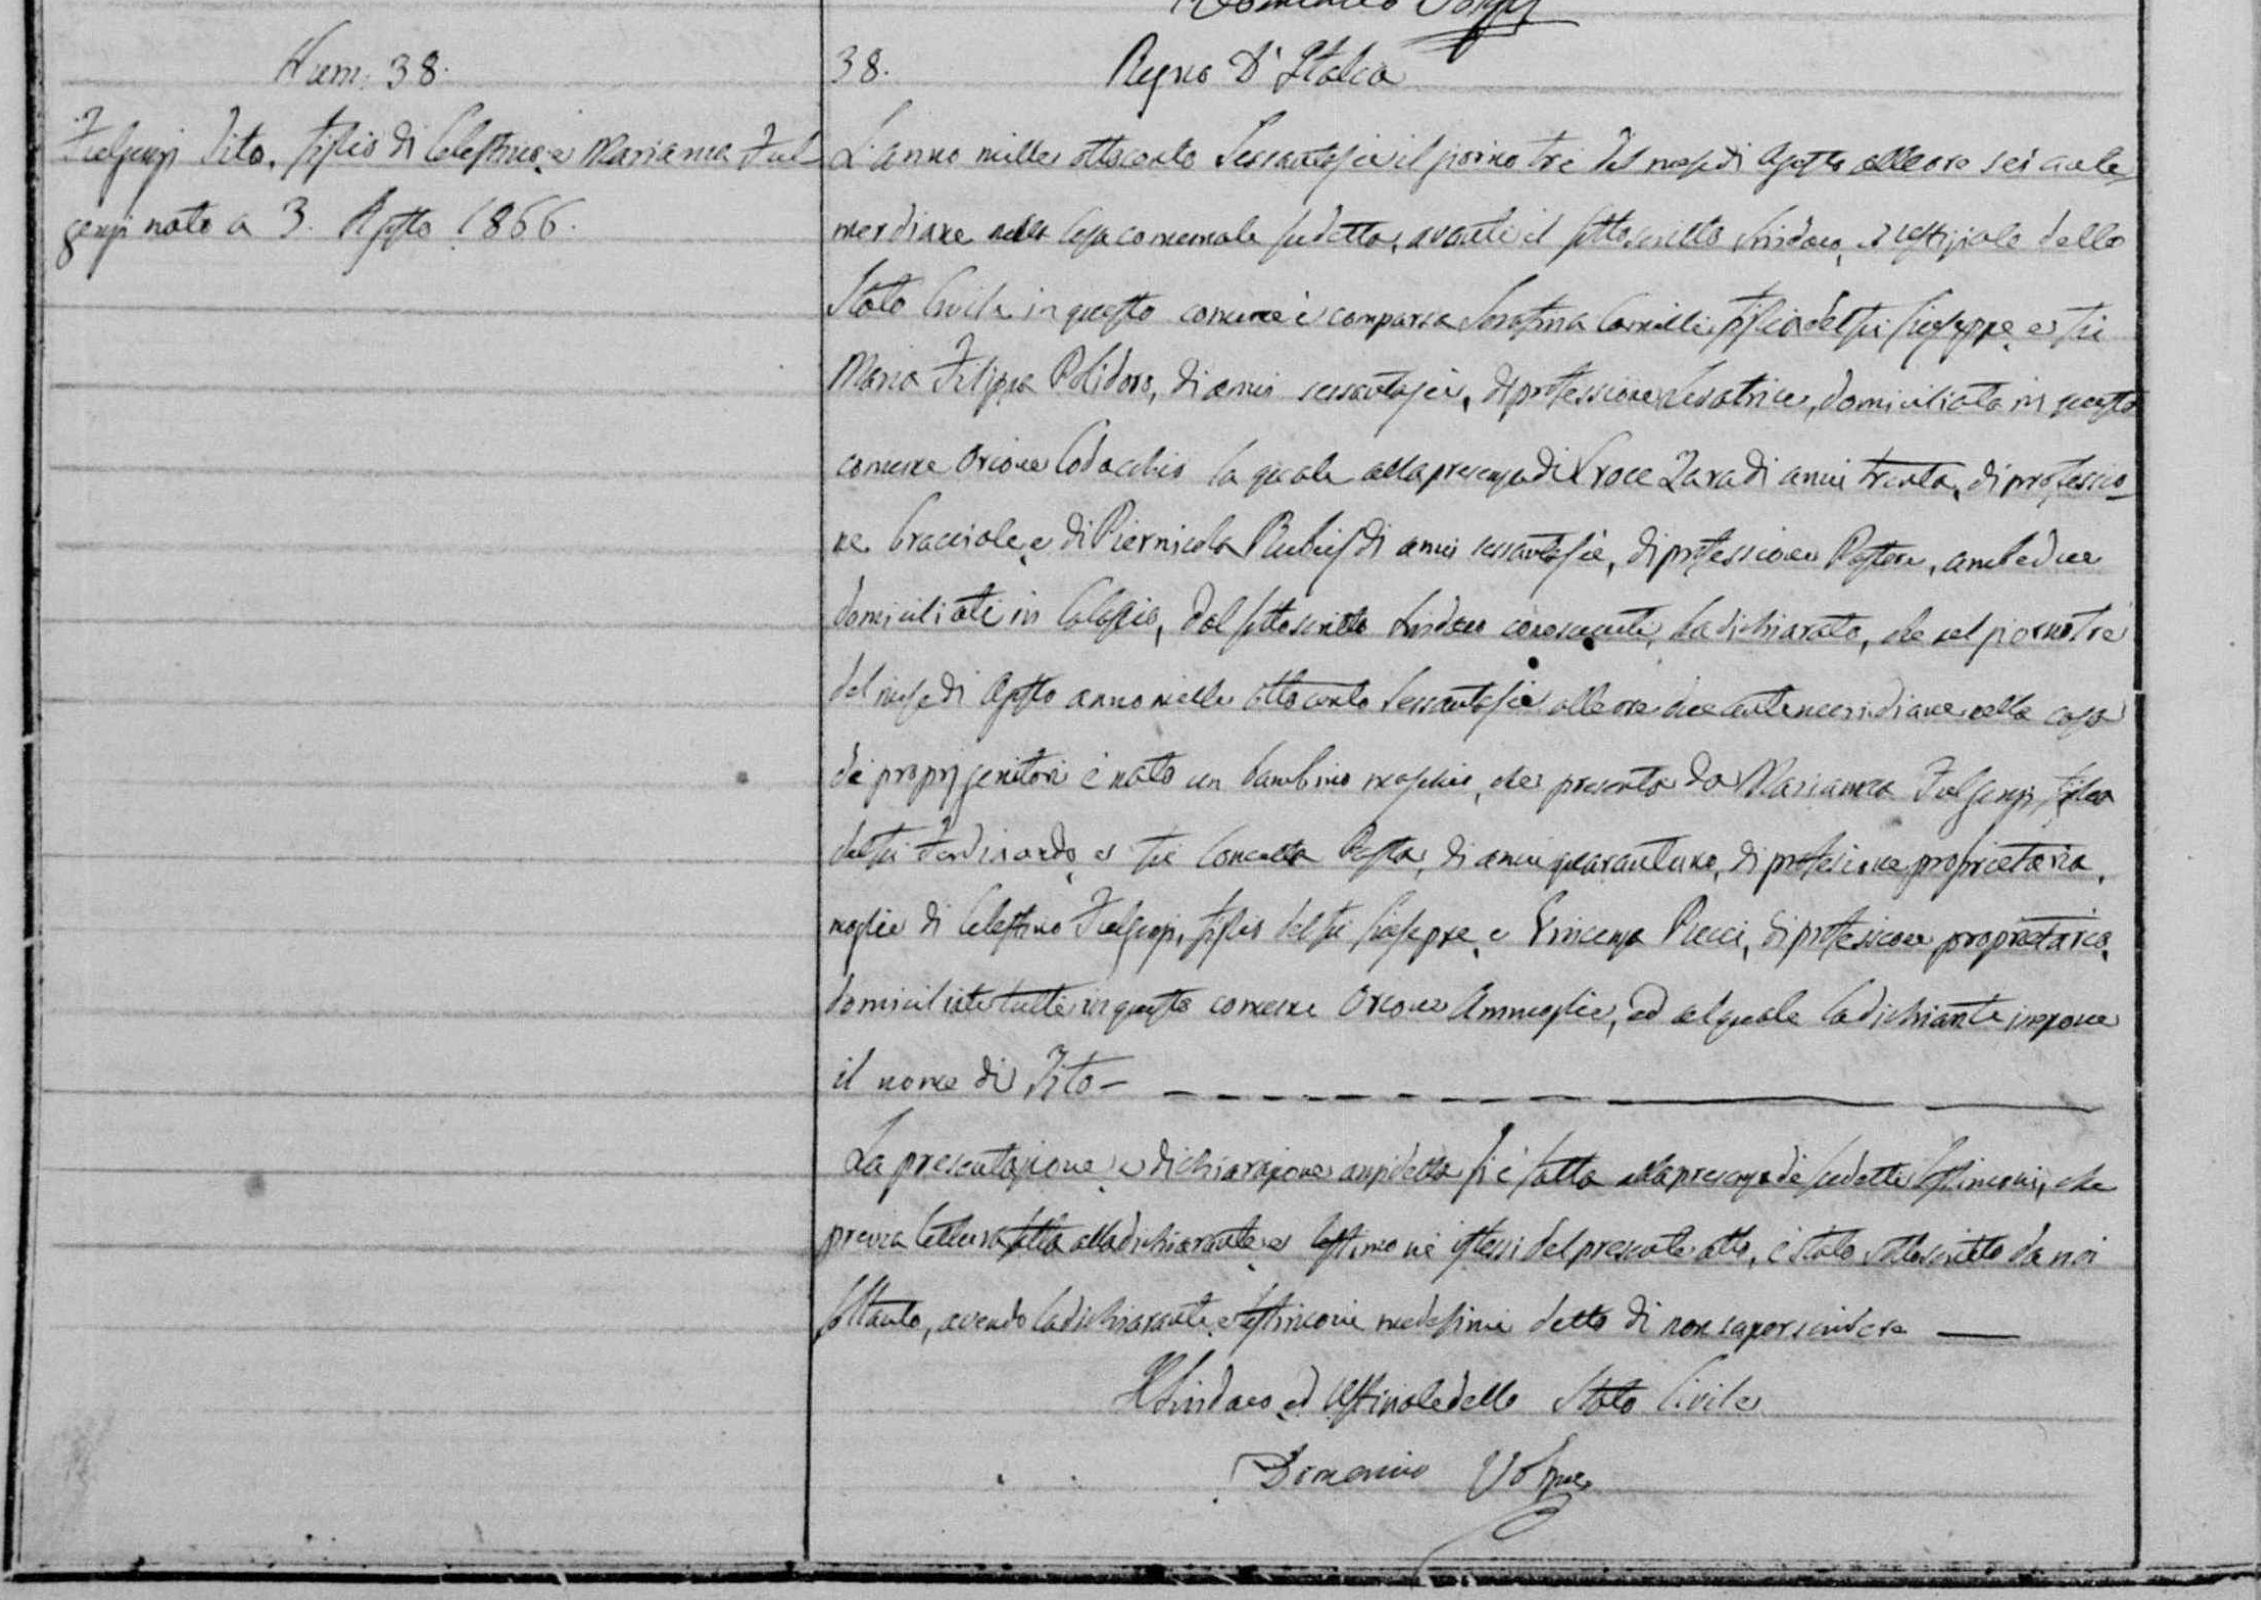 Domenico Volpe
Num. 38.
Fulgenzi Tito, figlio di Celestino, e Marianna Ful-
genzi nato a 3. Agosto 1866.
38. Regno D'Italia
L'anno mille ottocento Sessantasei il giorno tre del mese di Agosto alle ore sei ante-
merdiane nella Casa comunale sudetta, avanti il sottoscritto Sindaco, ed uffiziale dello
Stato Civile in questo comune è comparsa Serafina Camilli figlia del fu Giuseppe, e fu
Maria Filippa Polidoro, di anni sessantasei, di professione Levatrice, domiciliata in questo
comune Orione Codacchio la quale alla presenza di Croce Zara di anni trenta, di professio-
ne bracciale, e di Piernicola di anni sessantasei, di professione Pastore, ambedue
domiciliati in Calascio, dal sottoscritto Sindaco conosciuti, ha dichiarato, che nel giorno tre
del mese di Agosto anno mille ottocento Sessantasei alle ore due antemeridiane nella casa
de proprj genitori è nato un bambino maschio, che presenta da Marianna Fulgenzi figlia
del fu Ferdinando, e fu Concetta di anni quarantuno, di professione proprietaria,
moglie di Celestino Fulgenzi, figlio del fu Giuseppe, e Vincenza Pucci, di professione proprietario,
domiciliate tutti in questo comune Orione ed al quale la dichiarante impone
il nome di Tito –
La presentazione, e dichiarazione anzidetta si è fatta alla presenza de sudetti testimoni, che
previa lettura fatta alla dichiarante, e testimoni istessi del presente atto, è stato sottoscritto da noi
soltanto, avendo la dichiarante, e testimoni medesimi detto di non saper scrivere
Il Sindaco, ed Uffiziale dello Stato Civile
Domenico Volpe